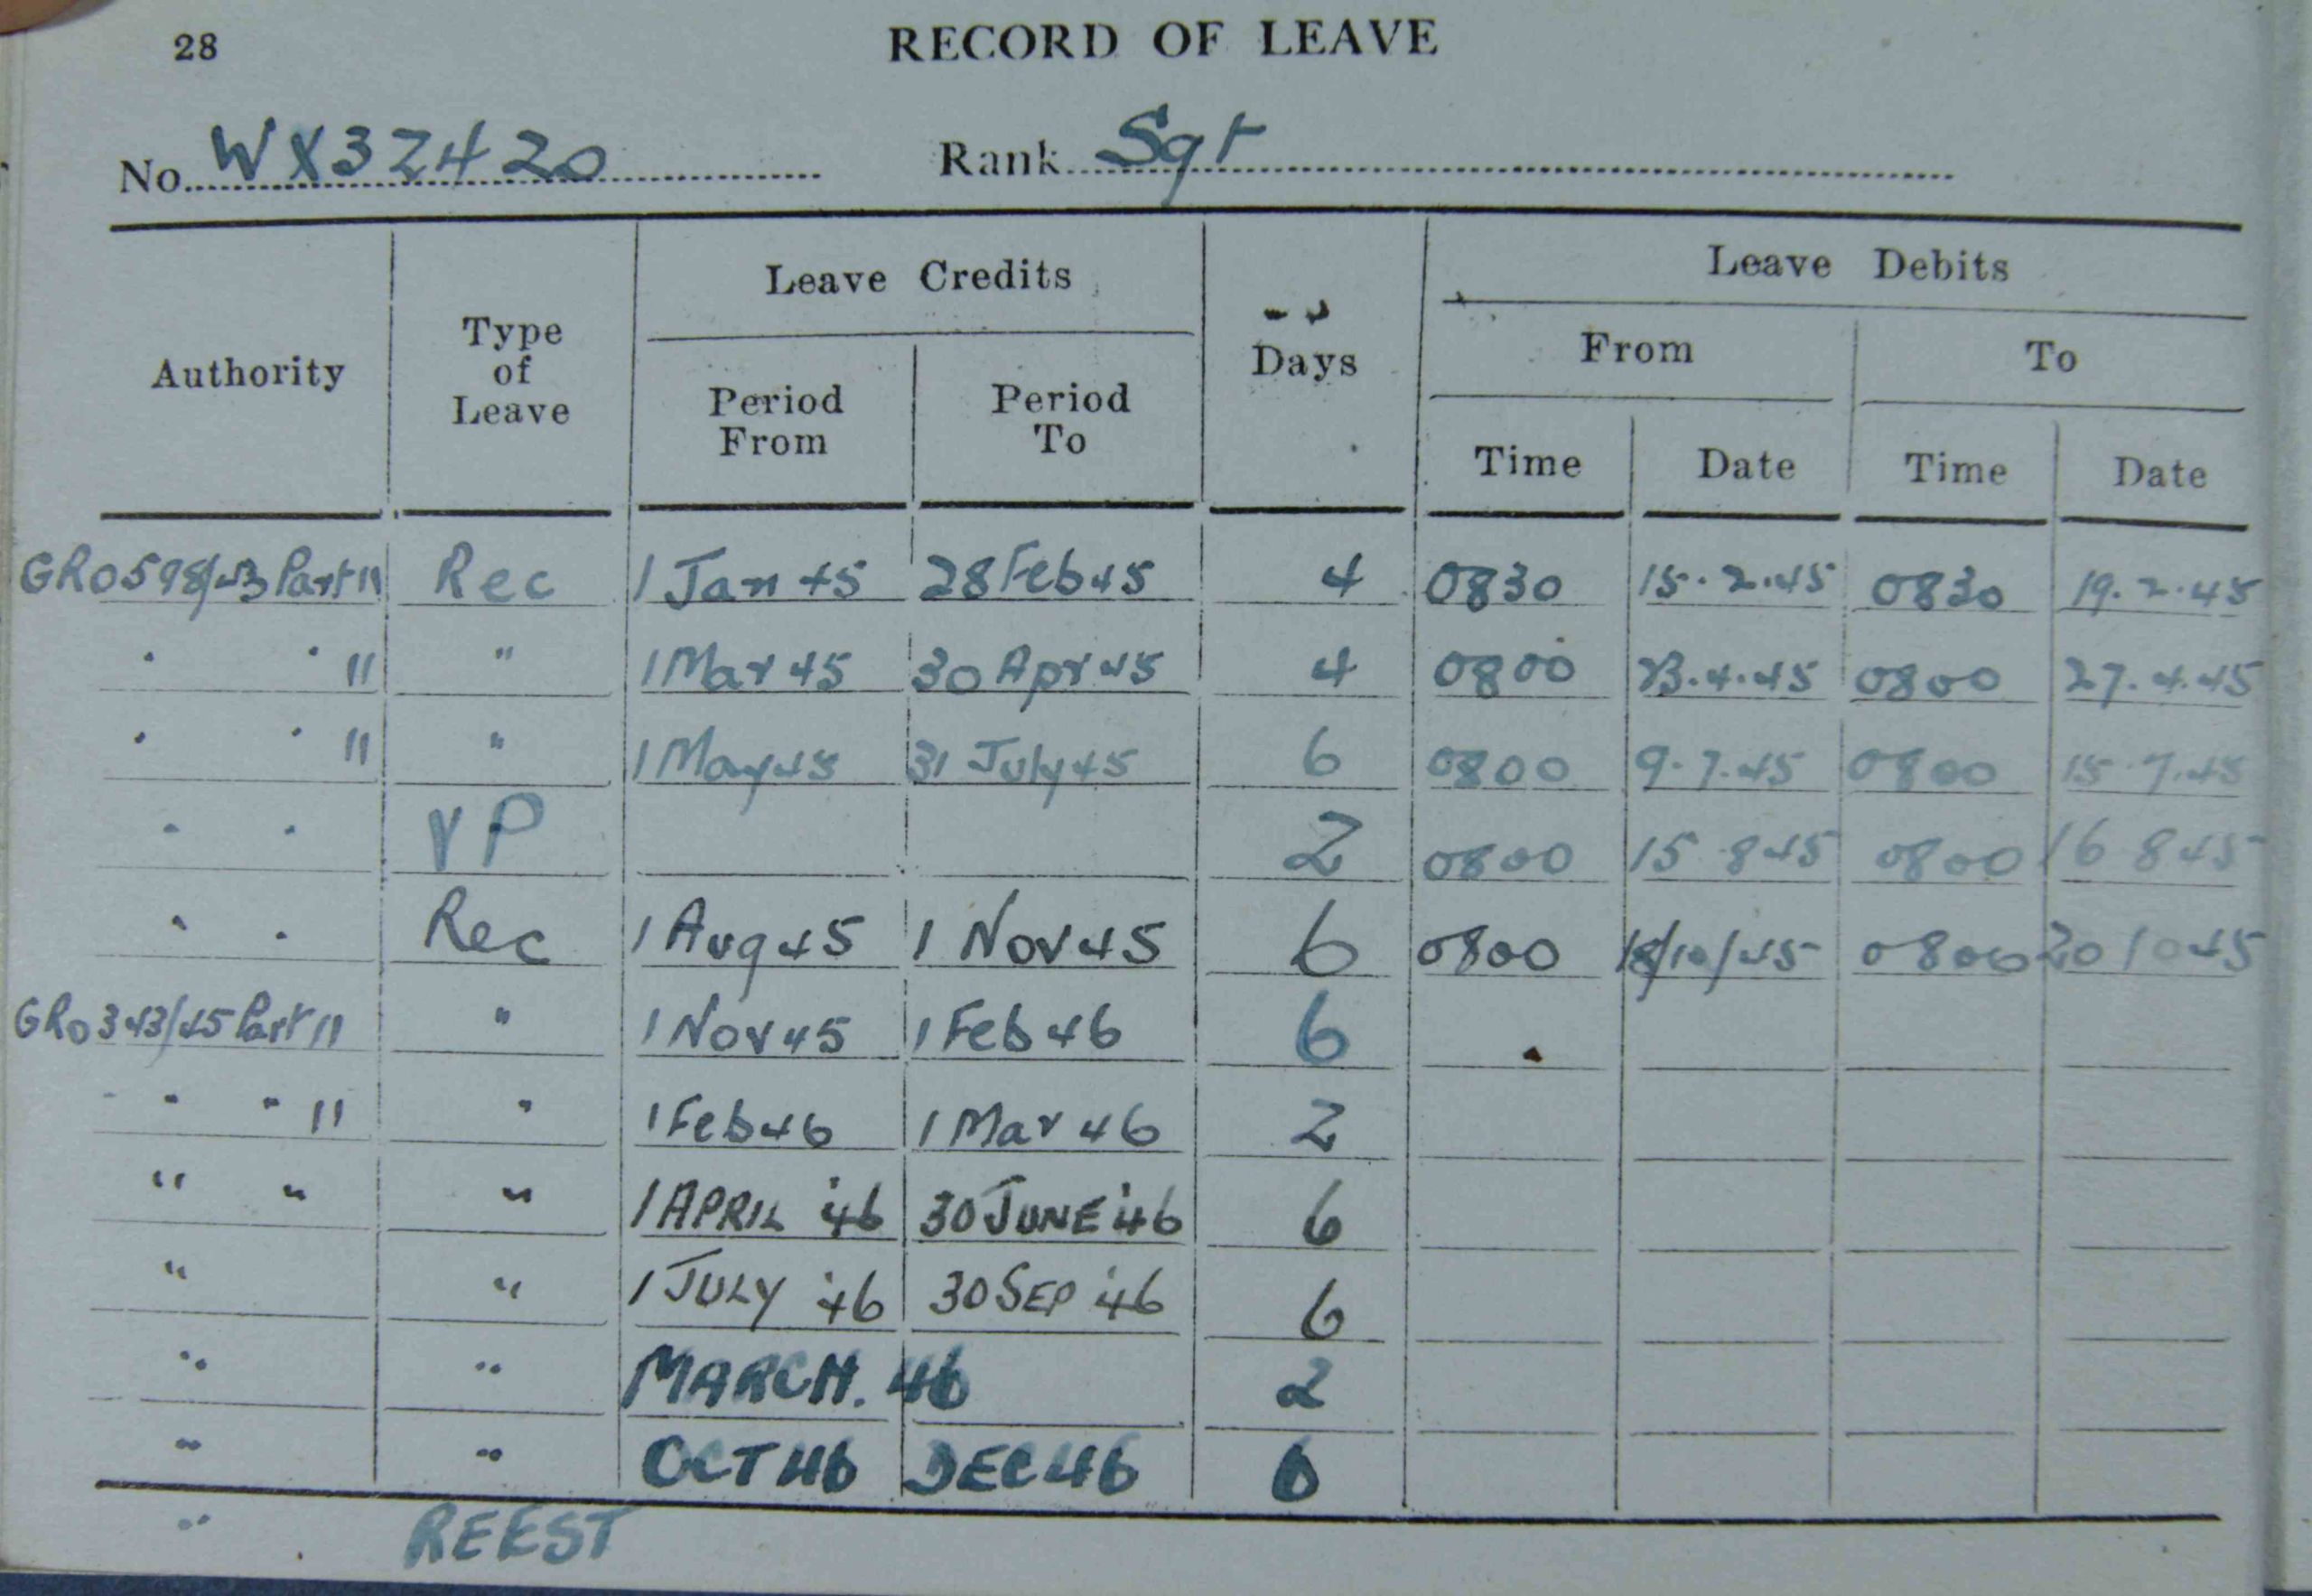 28
RECORD OF LEAVE
No. WX32420 Rank Sgt
Authority
Type of Leave
Leave Credits
Period From
Period To
Days
Leave Debits
From
To
Time
Date
Time
Date
GRO598/43 Part II Rec 1 Jan 45 28 Feb 45 4 0830 15.2.45 0830 19.2.45
" " II " 1 Mar 45 30 Apr 45 4 0800 23.4.45 0800 27.4.45
" " II " 1 May 45 31 July 45 6 0800 9.7.45 0800 15.7.45
" " VP 2 0800 15 8 45 0800 16 8 45
" " Rec 1 Aug 45 1 Nov 45 6 0800 18/10/45 0800 20 10 45
GRO343/45 Part II " 1 Nov 45 1 Feb 46 6
" " " II " 1 Feb 46 1 Mar 46 2
" " " 1 APRIL '46 30 JUNE '46 6
" " 1 JULY '46 30 SEP '46 6
" " MARCH. 46 2
" " OCT 46 DEC 46 6
" REEST